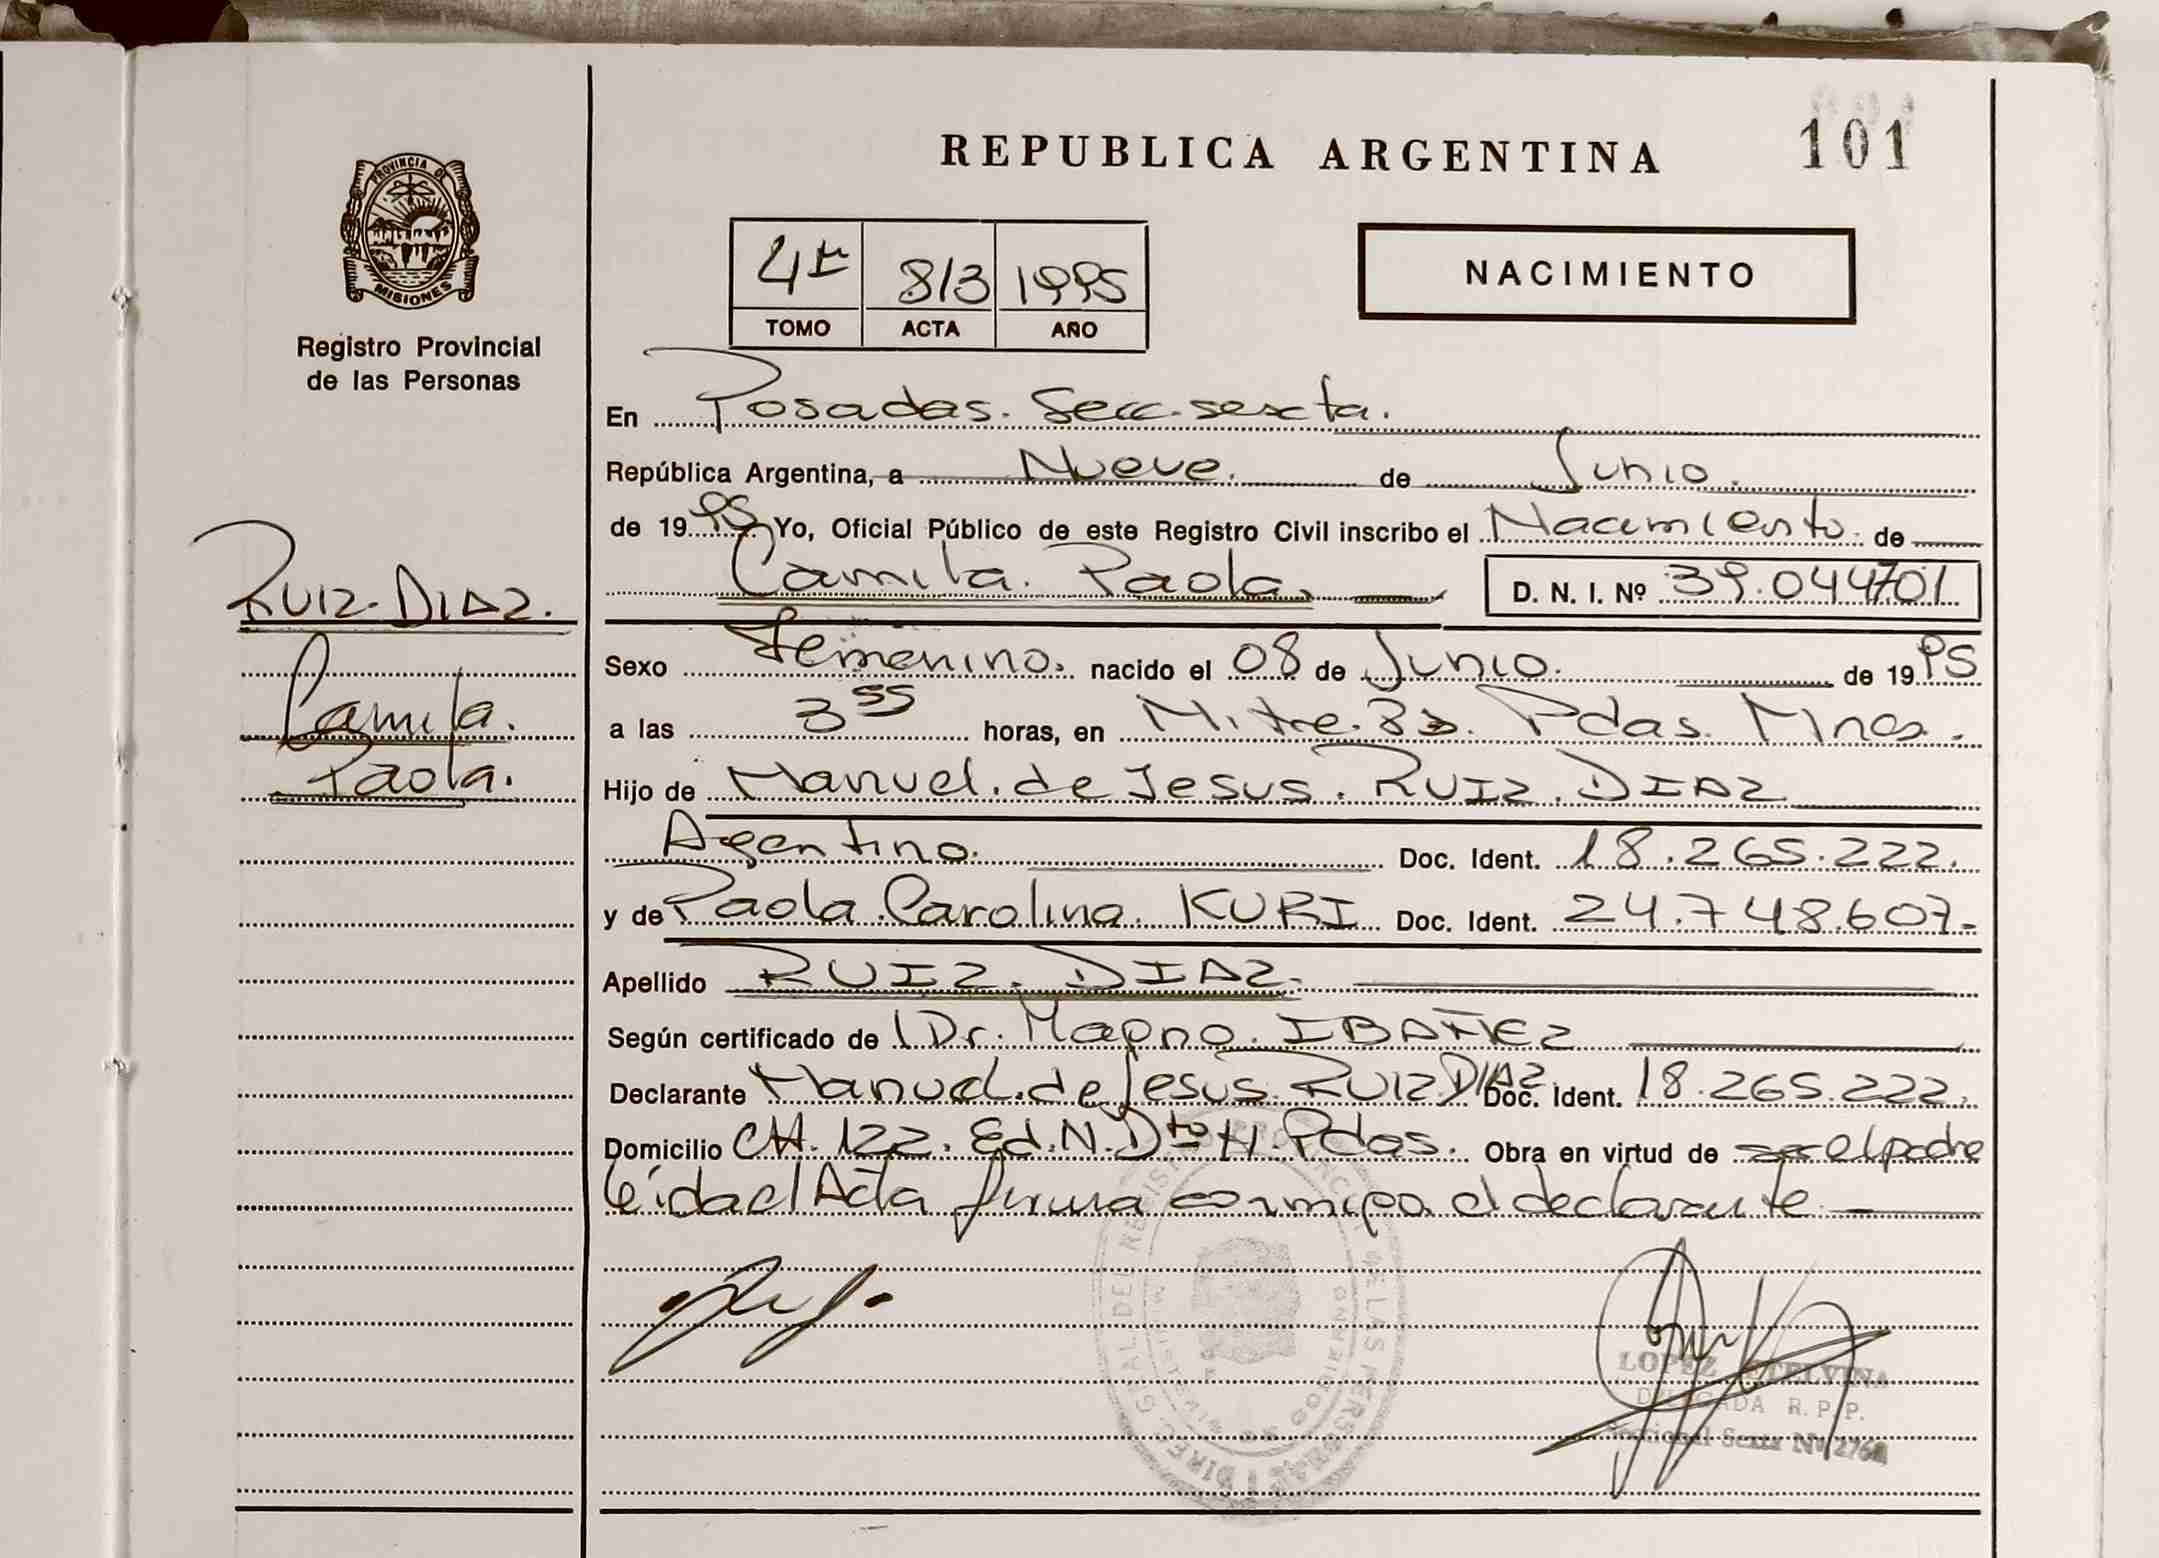 REPUBLICA ARGENTINA
101
PROVINCIA DE
MISIONES
Registro Provincial
de las Personas
4to 813 1995
TOMO ACTA AÑO
NACIMIENTO
En Posadas. Secc. sexta.
República Argentina, a Nueve. de Junio.
de 1995 Yo, Oficial Público de este Registro Civil inscribo el Nacimiento de
Camila. Paola.
D. N. I. Nº 39.044701
RUIZ. DIAZ.
Camila.
Paola.
Sexo Femenino. nacido el 08 de Junio. de 1995
a las 3 55 horas, en Mitre. Pdas. Mnes.
Hijo de Manuel. de Jesus. RUIZ. DIAZ
Agentino. Doc. Ident. 18.265.222.
y de Paola. Carolina. KURI Doc. Ident. 24.748.607.-
Apellido RUIZ. DIAZ.
Según certificado de Dr. Magno. IBAÑEZ
Declarante Manuel. de Jesus. RUIZ DIAZ Doc. Ident. 18.265.222.
Domicilio CH. 122. Ed. N. Dto H. Pdas. Obra en virtud de ser el padre
leida el Acta firma conmigo el declarante
LOPEZ ETELVINA
DELEGADA R.P.P.
Seccional Sexta Nº 276